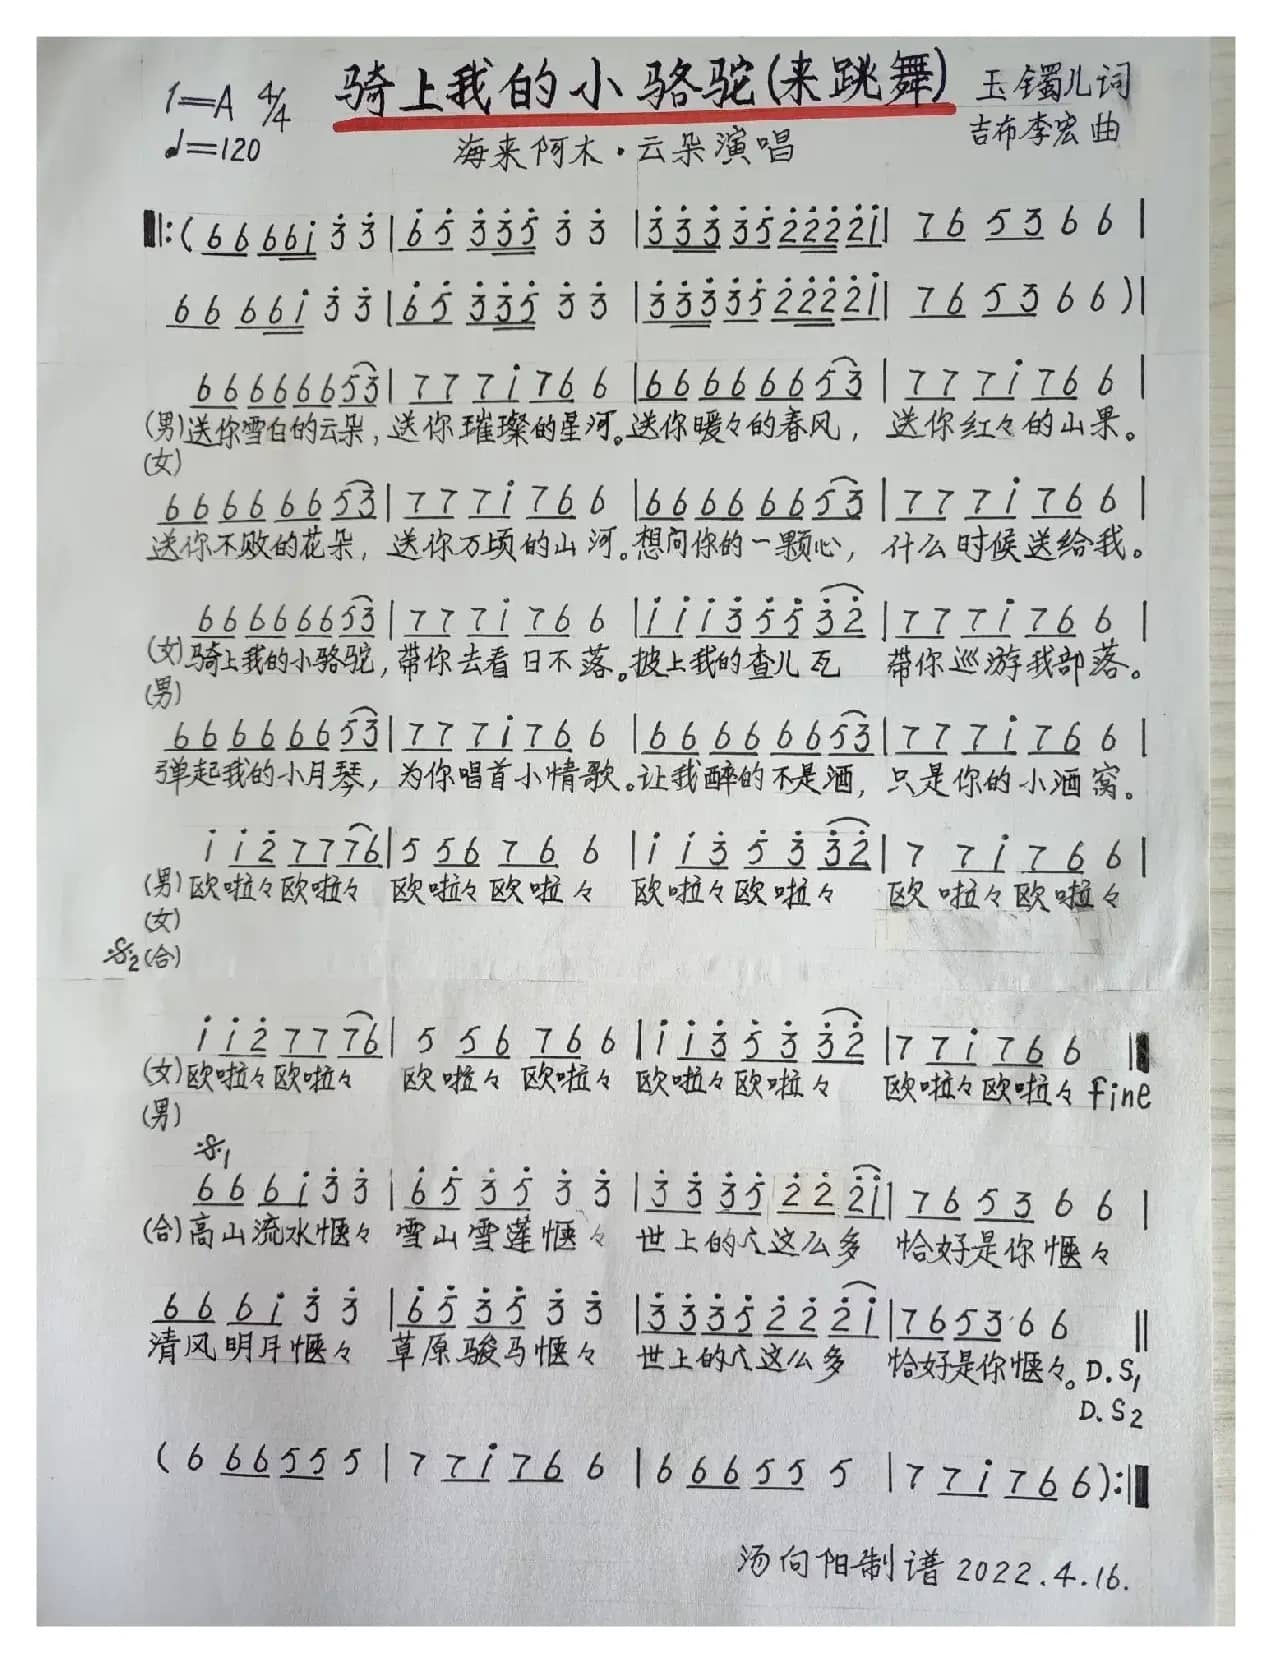 1=A 4/4 骑上我的小骆驼(来跳舞) 玉镯儿词
♩=120 海来阿木·云朵演唱 吉布李宏曲
‖:(6 6 6 6 i 3̇ 3̇ | 6̇ 5̇ 3̇ 3̇ 5̇ 3̇ 3̇ | 3̇ 3̇ 3̇ 3̇ 5̇ 2̇ 2̇ 2̇ 2̇ i | 7 6 5 3 6 6 |
6 6 6 6 i 3̇ 3̇ | 6̇ 5̇ 3̇ 3̇ 5̇ 3̇ 3̇ | 3̇ 3̇ 3̇ 3̇ 5̇ 2̇ 2̇ 2̇ 2̇ i | 7 6 5 3 6 6 )|
6 6 6 6 6 6 5 3 | 7 7 7 i 7 6 6 | 6 6 6 6 6 6 5 3 | 7 7 7 i 7 6 6 |
(男)送你雪白的云朵,送你璀璨的星河。送你暖々的春风,送你红々的山果。
(女)
6 6 6 6 6 6 5 3 | 7 7 7 i 7 6 6 | 6 6 6 6 6 6 5 3 | 7 7 7 i 7 6 6 |
送你不败的花朵,送你万顷的山河。想问你的一颗心,什么时候送给我。
6 6 6 6 6 6 5 3 | 7 7 7 i 7 6 6 | i i i 3̇ 5̇ 5̇ 3̇ 2̇ | 7 7 7 i 7 6 6 |
(女)骑上我的小骆驼,带你去看日不落。披上我的查儿瓦 带你巡游我部落。
(男)
6 6 6 6 6 6 5 3 | 7 7 7 i 7 6 6 | 6 6 6 6 6 6 5 3 | 7 7 7 i 7 6 6 |
弹起我的小月琴,为你唱首小情歌。让我醉的不是酒,只是你的小酒窝。
i i 2̇ 7 7 7 6 | 5 5 6 7 6 6 | i i 3̇ 5̇ 3̇ 3̇ 2̇ | 7 7 i 7 6 6 |
(男)欧啦々欧啦々 欧啦々欧啦々 欧啦々欧啦々 欧啦々欧啦々
(女)
𝄋2(合)
i i 2̇ 7 7 7 6 | 5 5 6 7 6 6 | i i 3̇ 5̇ 3̇ 3̇ 2̇ | 7 7 i 7 6 6 ‖
(女)欧啦々欧啦々 欧啦々欧啦々 欧啦々欧啦々 欧啦々欧啦々 fine
(男)
𝄋1
6 6 6 i 3̇ 3̇ | 6̇ 5̇ 3̇ 5̇ 3̇ 3̇ | 3̇ 3̇ 3̇ 5̇ 2̇ 2̇ 2̇ i | 7 6 5 3 6 6 |
(合)高山流水惬々 雪山雪莲惬々 世上的 这么多 恰好是你惬々
6 6 6 i 3̇ 3̇ | 6̇ 5̇ 3̇ 5̇ 3̇ 3̇ | 3̇ 3̇ 3̇ 5̇ 2̇ 2̇ 2̇ i | 7 6 5 3 6 6 ‖
清风明月惬々 草原骏马惬々 世上的 这么多 恰好是你惬々。D.S1
D.S2
(6 6 6 5 5 5 | 7 7 i 7 6 6 | 6 6 6 5 5 5 | 7 7 i 7 6 6 ):‖
汤向阳制谱 2022.4.16.